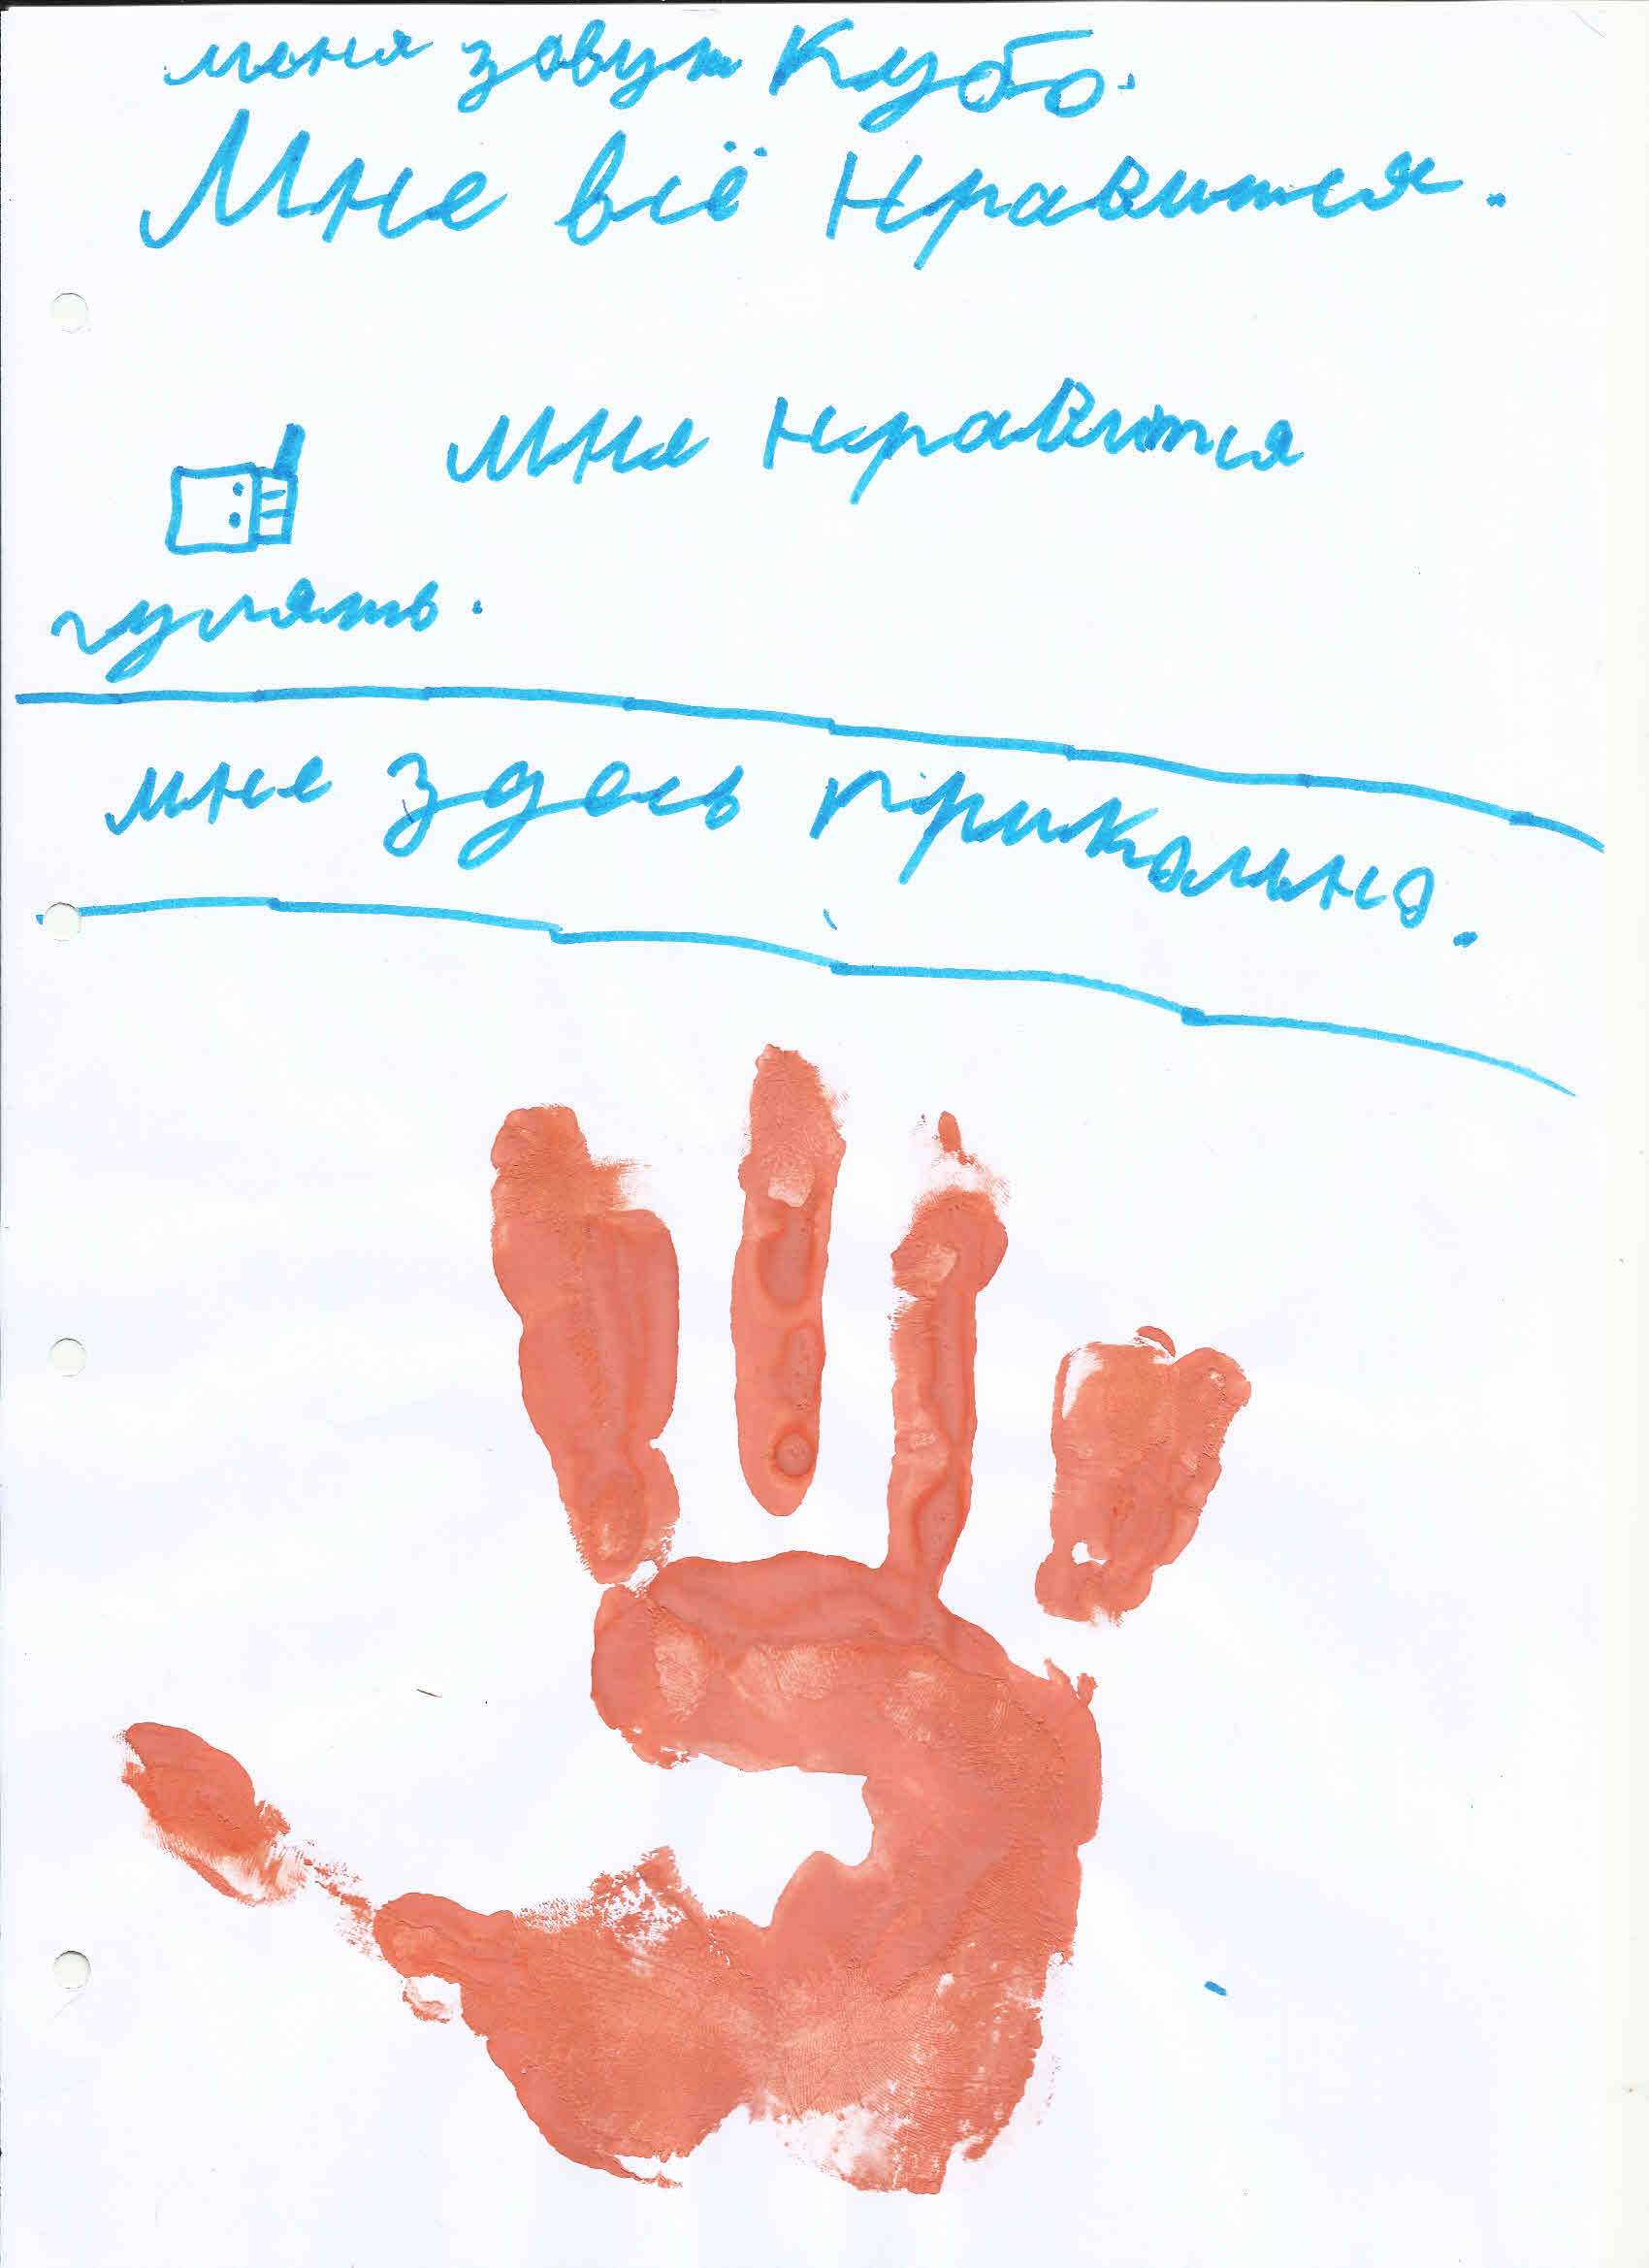 меня зовут Кубо.
Мне всё нравится.
мне нравится
гулять.
мне здесь прикольно.